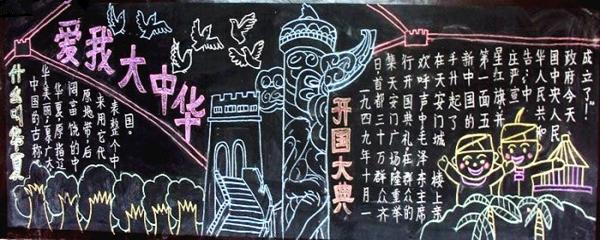 爱我大中华
什么叫华夏
中国的古称
华美丽;夏,广大
华夏原指辽
阔富饶的中
原地带,后
来用它代
表整个中
国。
开国大典
一九四九年十月一
日,首都三十万群众齐
集天安门广场,隆重举
行开国典礼。在群众的
欢呼声中,毛泽东主席
在天安门城楼上亲
手升起了
新中国的
第一面五
星红旗,并
庄严宣
告:中
华人民共和
国中央人民
政府今天
成立了!